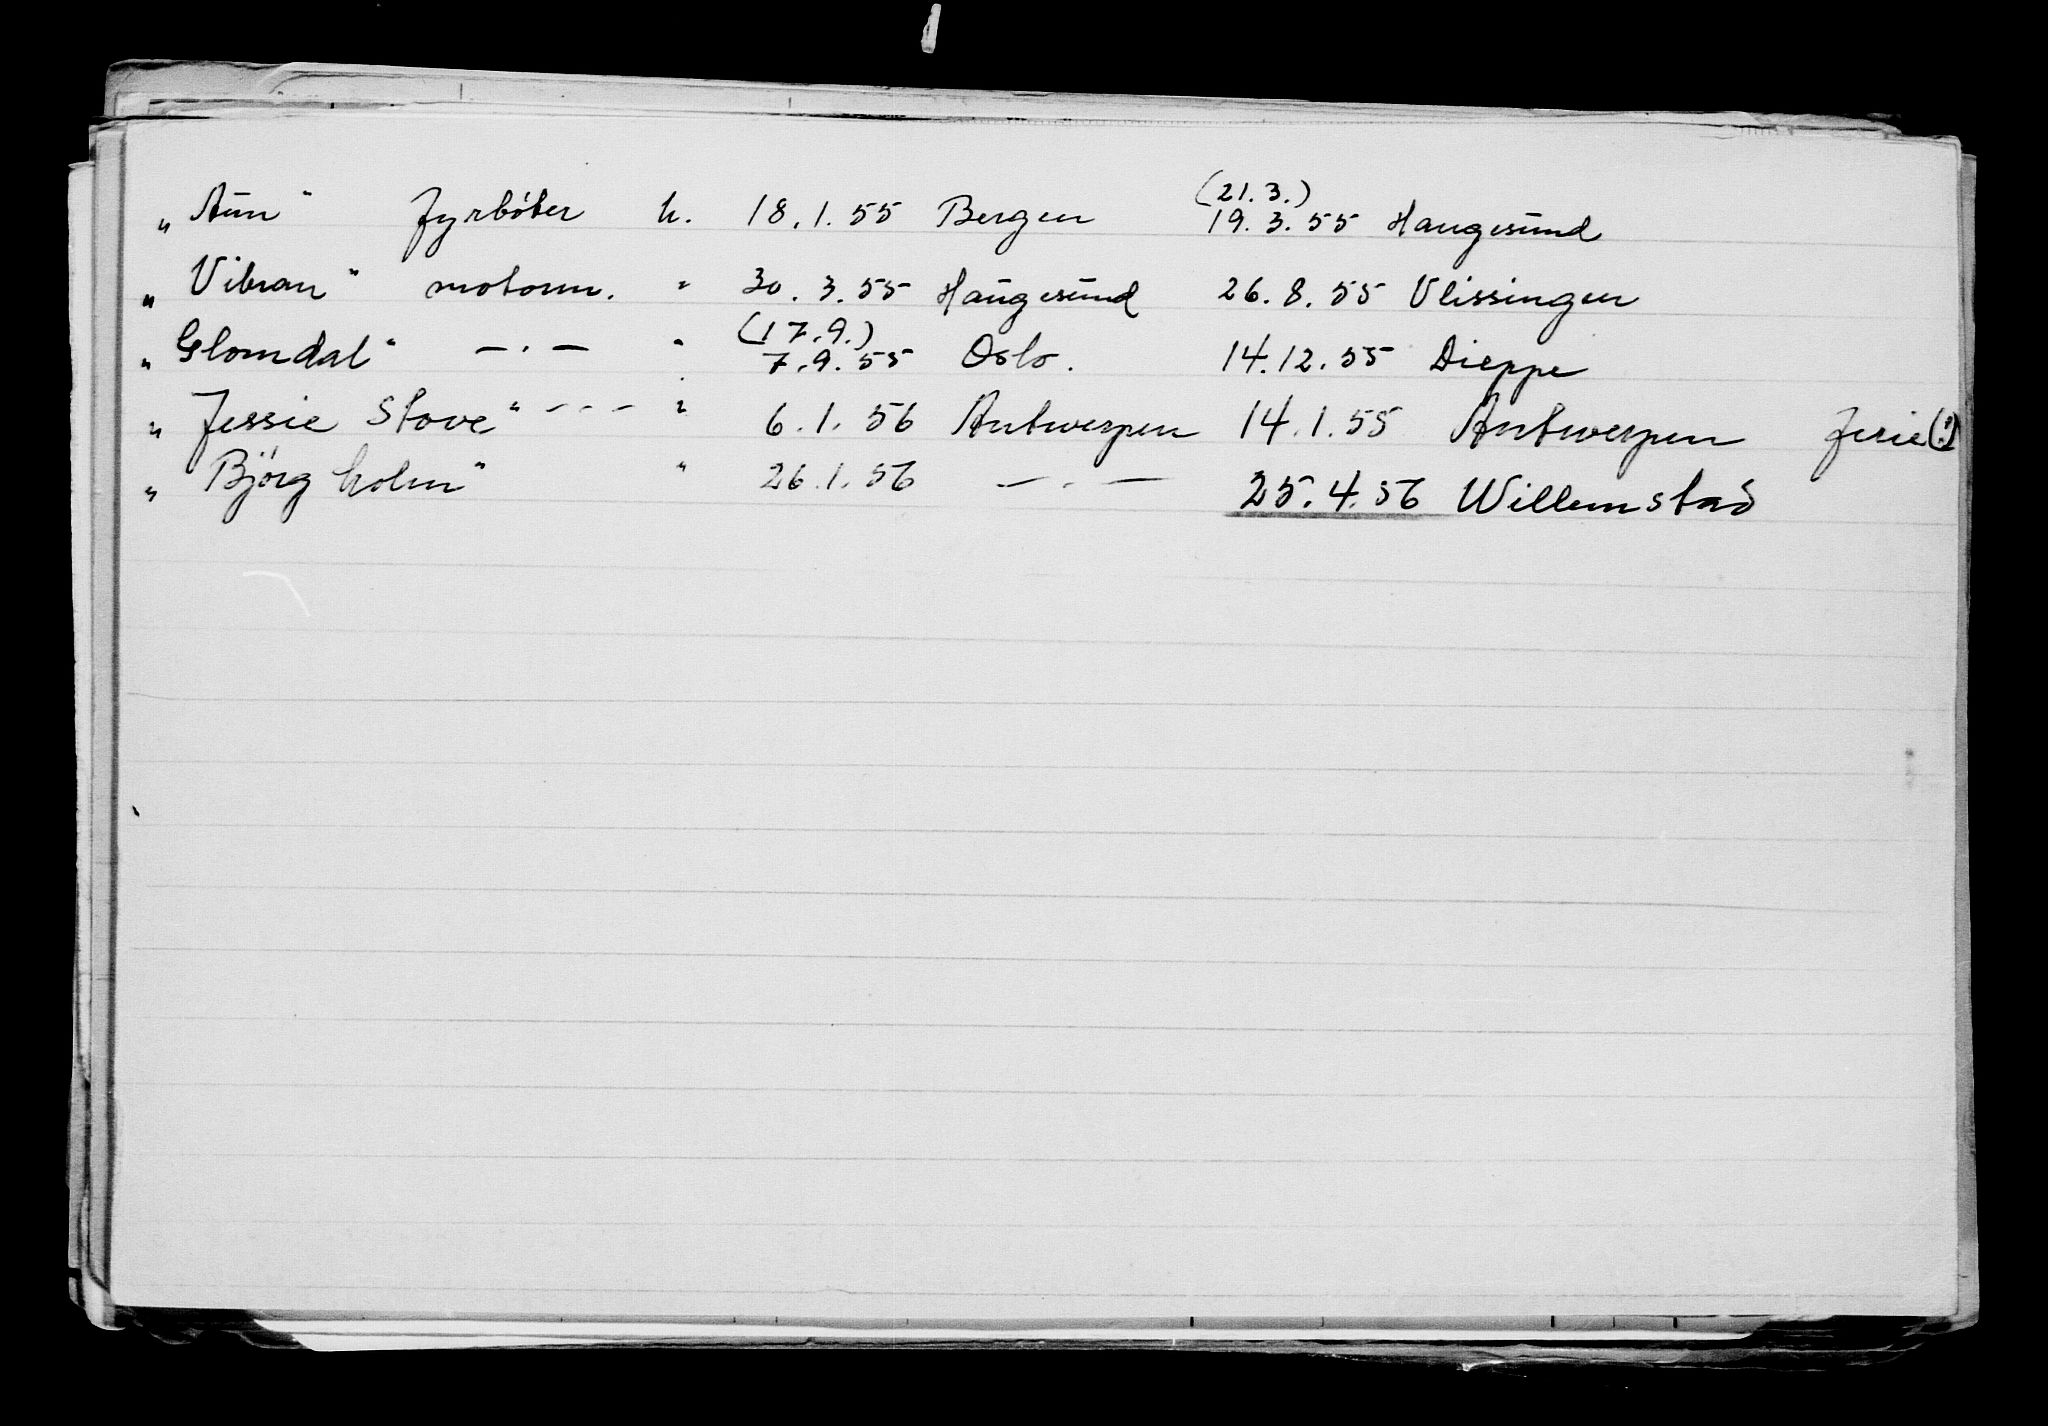 „Aun“ fyrböter h. 18.1.55 Bergen (21.3.) 19.3.55 Haugesund
„Vibran“ motorm. " 30.3.55 Haugesund 26.8.55 Vlissingen
„Glomdal“ —.— " (17.9.) 7.9.55 Oslo. 14.12.55 Dieppe
„Jessie Stove“ --- " 6.1.56 Antwerpen 14.1.55 Antwerpen ferie (!)
„Björgholm“ " 26.1.56 —.— 25.4.56 Willemstad